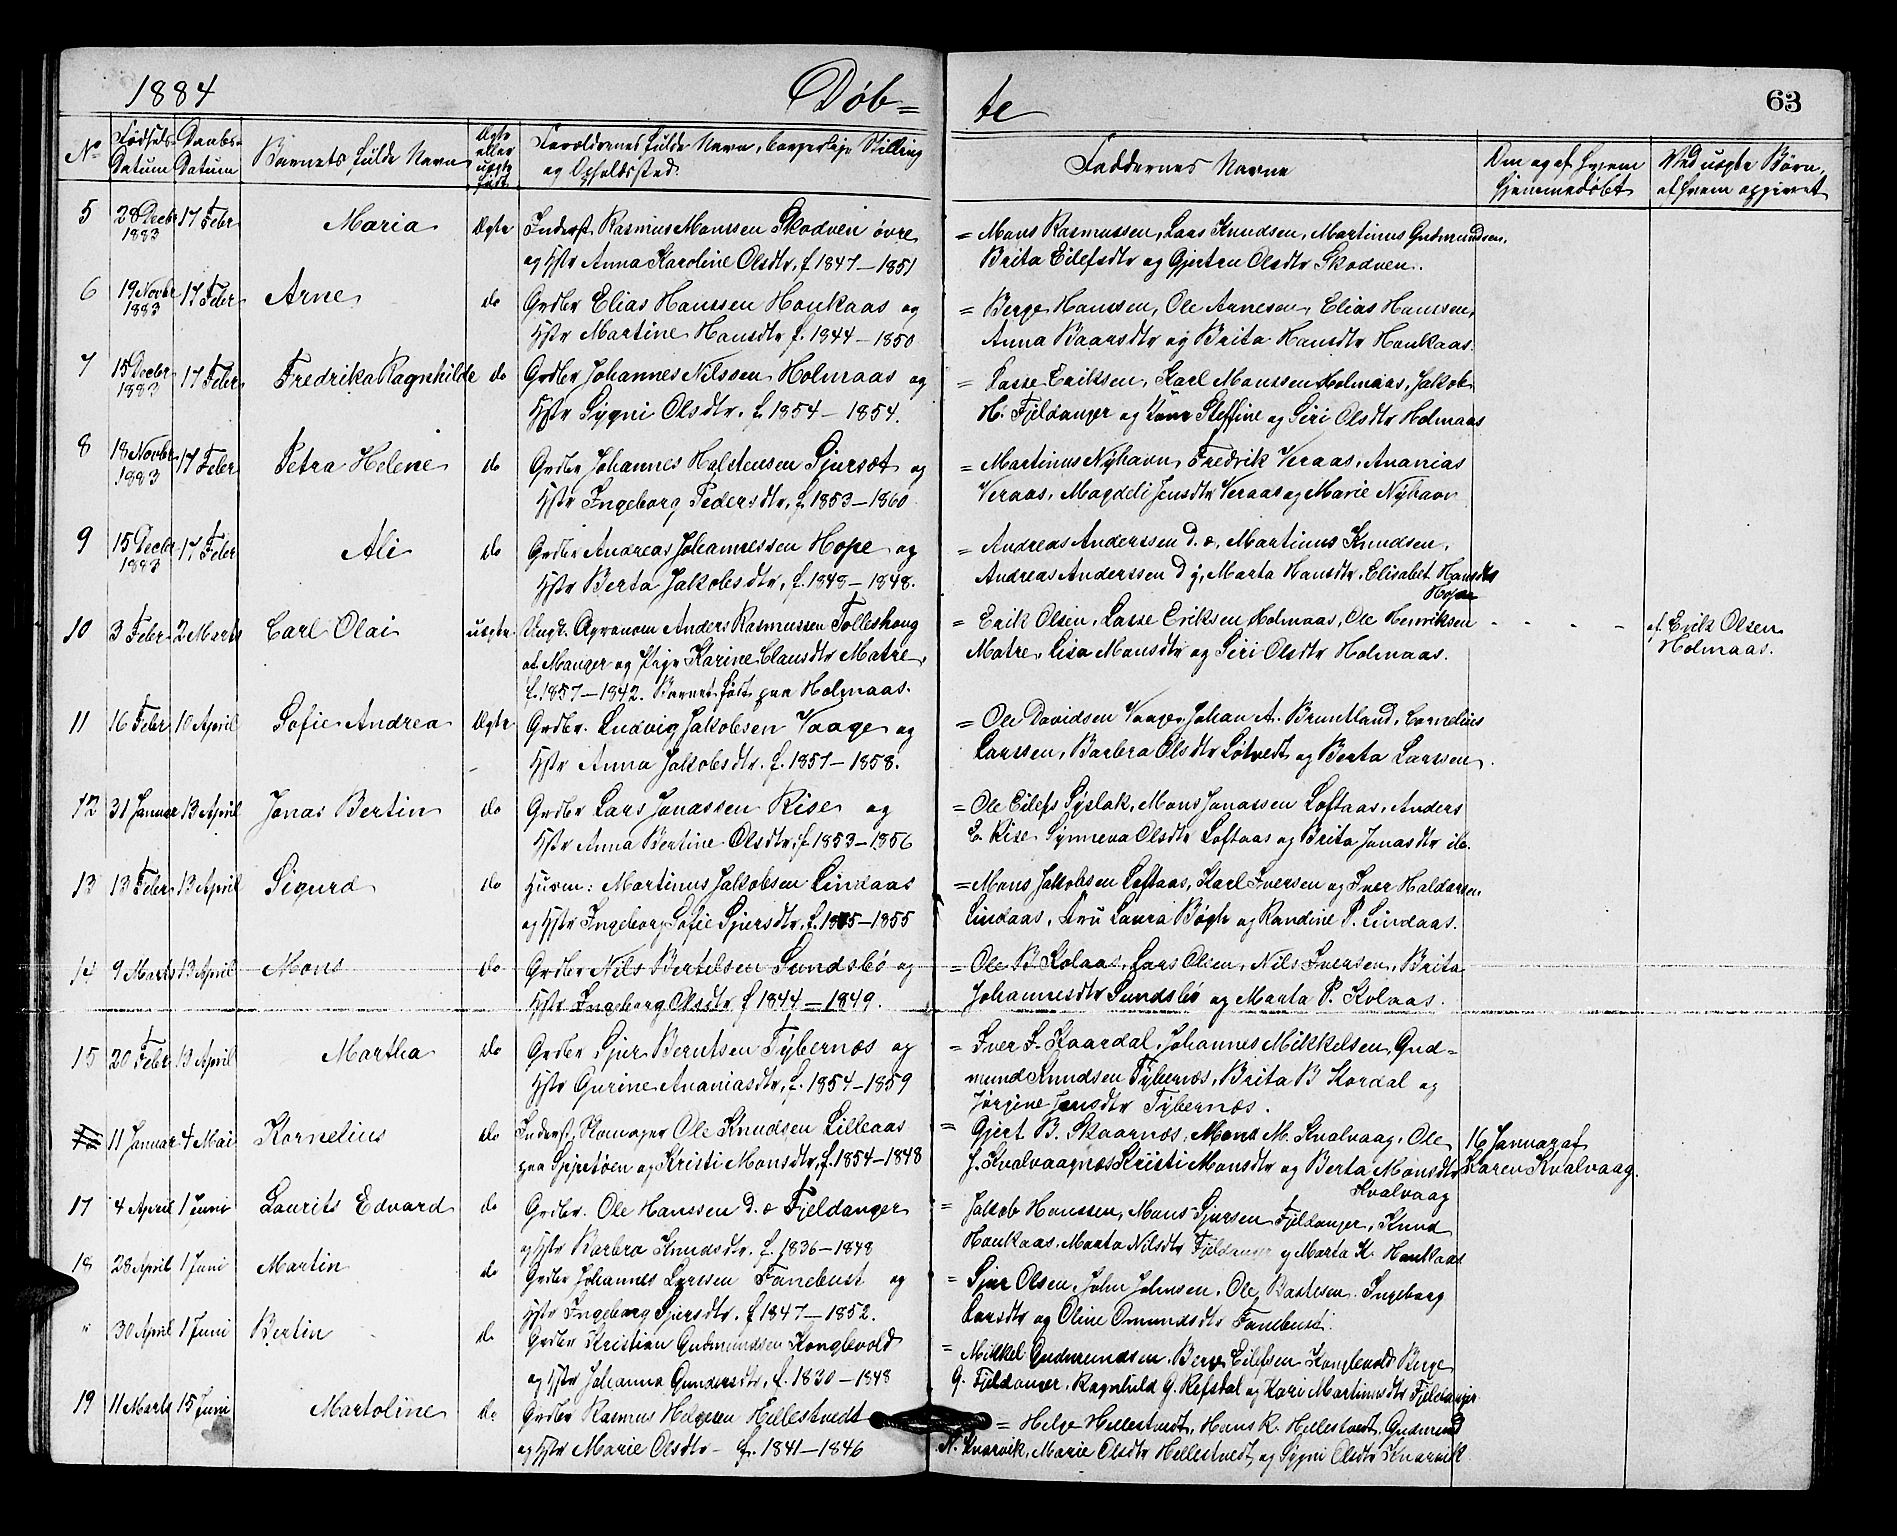 1884
Døb=
te
63
No
Fødsels-Datum
Daabs-Datum
Barnets fulde Navn
Ægte eller uægte født
Forældrenes fulde Navn, borgerlige Stilling
og Opholdssted
Faddernes Navne
Om og af hvem
hjemmedøbt
Ved uægte Børn,
af hvem opgivet
5 28 Decbr 1883 17 Febr Maria Ægte Inderst Rasmus Monssen Skodven øvre = Mons Rasmussen, Lars Knudsen, Martinus Gudmundsen,
og Hstr Anna Karoline Olsdtr, f 1847–1851 Brita Eilefsdtr og Gjertru Olsdtr Skodven.
6 19 Novbr 1883 17 Febr Arne do Grdbr Elias Hanssen Haukaas og = Berge Hanssen, Ole Arnesen, Elias Hanssen,
Hstr Martine Hansdtr f. 1844–1850 Anna Baarsdtr og Brita Hansdtr Haukaas.
7 15 Decbr 1883 17 Febr Fredrika Ragnhilde do Grdbr Johannes Nilssen Holmaas og = Lasse Eriksen, Karl Monssen Holmaas, Jakob
Hstr Sygni Olsdtr. f. 1854–1854. H. Fjeldanger og Steffine og Siri Olsdtr Holmaas
8 18 Novbr 1883 17 Febr Petra Helene do Grdbr Johannes Halstensen Sjursæt og = Martinus Nyhavn, Fredrik Veraas, Ananias
Hstr Ingeborg Pedersdtr, f. 1853–1860. Veraas, Magdeli Jensdtr Veraas og Marie Nyhavn
9 15 Decbr 1883 17 Febr Ali do Grdbr Andreas Johannessen Hope og = Andreas Anderssen d. æ, Martinus Knudsen,
Hstr Berta Jakobsdtr, f. 1848–1848. Andreas Anderssen d y, Marta Hansdtr, Elisabet Hansdtr
Hope
10 3 Febr 2 Marts Carl Olai uægte Ungk. Agronom Anders Rasmussen Tolleshaug = Erik Olsen, Lasse Eriksen Holmaas, Ole Henriksen - - - - af Erik Olsen
af Manger og Pige Karine Clausdtr Matre, Matre, Lisa Monsdtr og Siri Olsdtr Holmaas. Holmaas.
f. 1857–1842. Barnet født paa Holmaas.
11 16 Febr 10 April Sofie Andrea Ægte Grdbr. Ludvig Jakobsen Vaage og = Ole Davidsen Vaage, Johan A. Bruntland, Cornelius
Hstr Anna Jakobsdtr. f. 1857–1858. Larssen, Barbra Olsdtr Løtvedt og Berta Larssen.
12 31 Januar 13 April Jonas Bertin do Grdbr Lars Jonassen Rise og = Ole Eilefs Syslak, Mons Jonassen Loftaas, Anders
Hstr Anna Bertine Olsdtr, f 1853–1856 L. Rise, Synneva Olsdtr Loftaas og Brita Jonasdtr ib.
13 13 Febr 13 April Sigurd do Husm: Martinus Jakobsen Lindaas = Mons Jakobsen Loftaas, Karl Iversen og Iver Haldorsen
og Hstr Ingeborg Sofie Sjursdtr, f. 1855–1855 Lindaas, Fru Laura Bøgh og Randine P. Lindaas.
14 9 Marts 13 April Mons do Grdbr Nils Bertelsen Sundsbø og = Ole B Kolaas, Lars Olsen, Nils Iversen, Brita
Hstr Ingeborg Olsdtr f 1844–1849. Johannesdtr Sundsbø og Marta P. Kolaas.
15 20 Febr 13 April Martha do Grdbr Sjur Berntsen Fybernæs og = Iver S. Kaardal, Johannes Mikkelsen, Gud=
Hstr Gurine Ananiasdtr, f. 1854–1859 mund Knudsen Fybernæs, Brita B Kordal og
Jørgine Jensdtr Fybernæs.
11 Januar 4 Mai Kornelius do Inderst, Skomager Ole Knudsen Lilleaas = Gjert B. Skaarnæs, Mons M. Kvalvaag, Ole 16 Januar af
paa og Kristi Monsdtr, f. 1854–1848 J. Kvalvaagnæs Kristi Monsdtr og Berta Monsdtr Karen Kvalvaag.
Kvalvaag
17 4 April 1 Juni Laurits Edvard do Grdbr. Ole Hanssen d. æ Fjeldanger = Jakob Hanssen, Mons Sjursen Fjeldanger, Knud
og Hstr Barbro Knudsdtr. f. 1836–1848 Haukaas, Marta Nilsdtr Fjeldanger og Marta K. Haukaas
18 28 April 1 Juni Martin do Grdbr Johannes Larssen Fanebust og = Sjur Olsen, John Johnsen, Ole Bastesen, Ingeborg
Hstr Ingeborg Sjursdtr. f. 1847–1852. Larsdtr og Oline Omundsdtr Fanebust.
" 30 April 1 Juni Bertin do Grdbr Kristian Gudmundsen Konglevold = Mikkel Gudmundsen, Berge Eilefsen Konglevold, Berge
og Hstr Johanna Gundersdtr, f. 1830–1848 G. Fjeldanger, Ragnhild G. Refsdal og Kari Martinusdtr Fjeldanger
19 11 Marts 15 Juni Martoline do Grdbr Rasmus Helgesen Hellestvedt = Helge Hellestvedt, Hans R. Hellestvedt, Gudmund
og Hstr Marie Olsdtr – f. 1841–1846 N. Knarvik, Marie Olsdtr Hellestvedt og Sygni Olsdtr Knarvik